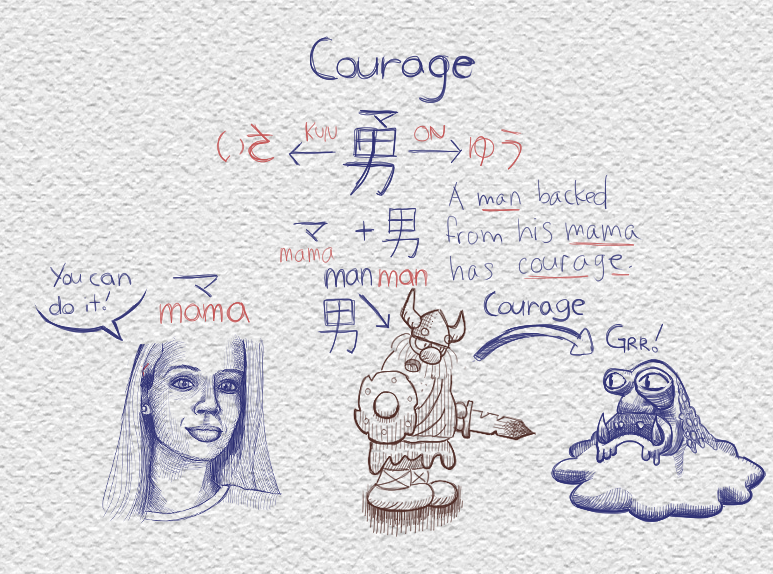 Courage
いさ KUN 勇 ON ゆう
マ + 男
mama
man man
A man backed
from his mama
has courage.
You can
do it!
マ
mama
男
Courage
GRR!